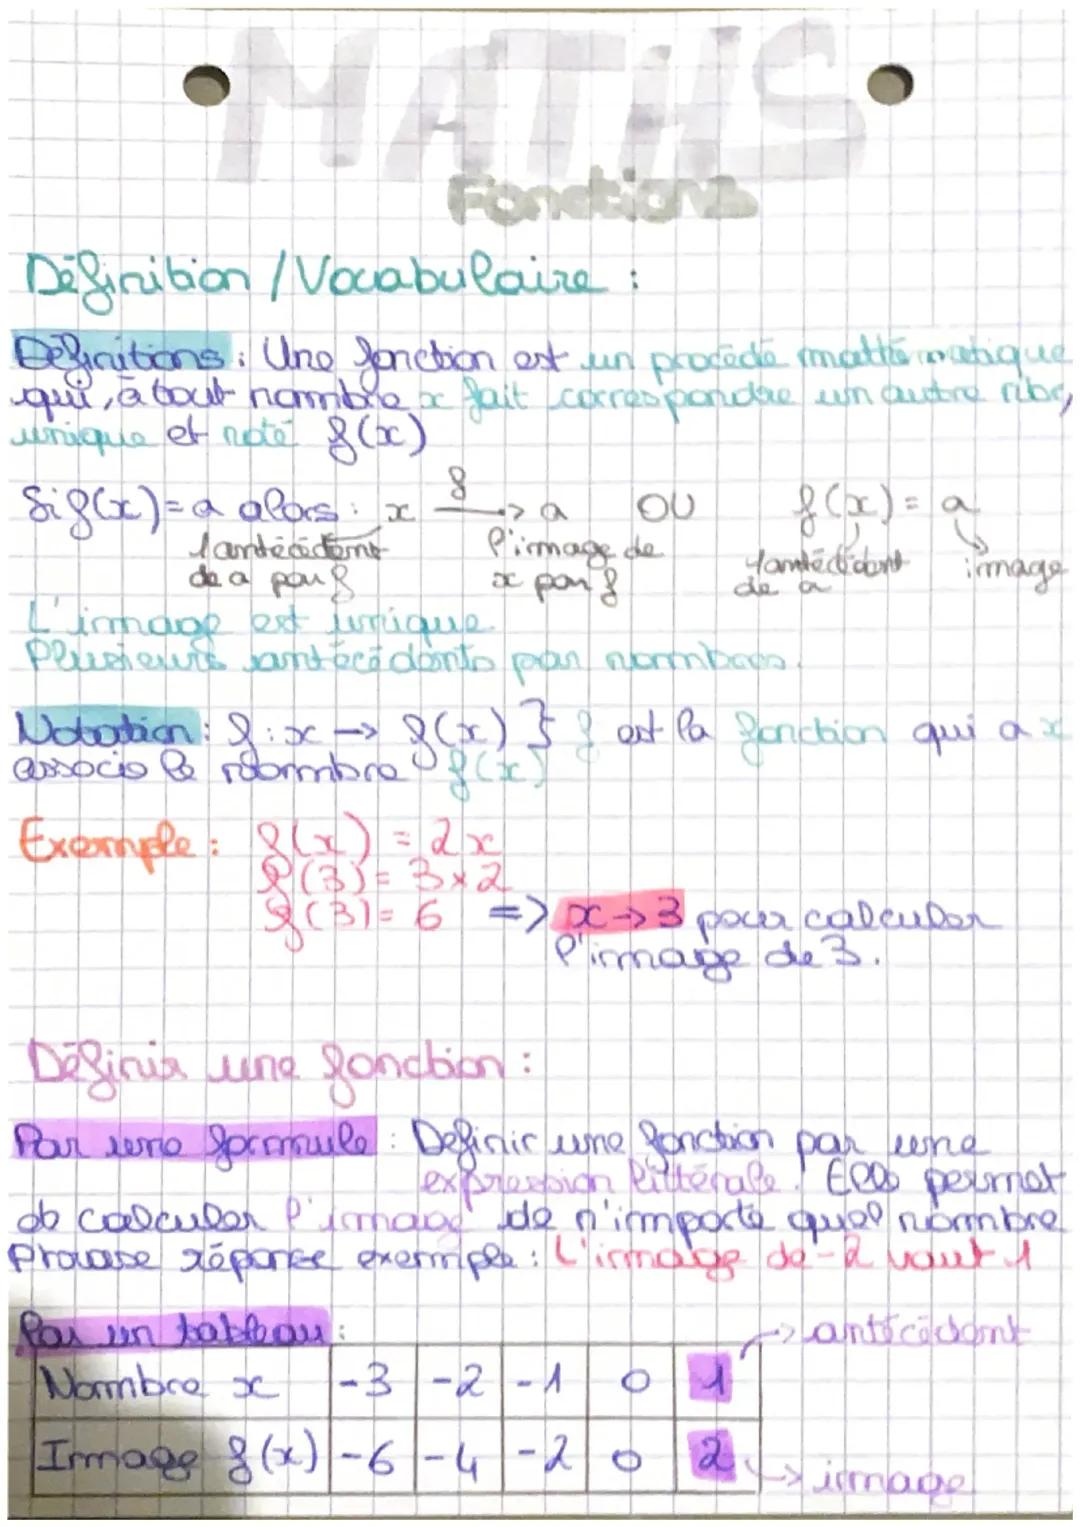 MATHS
Fonctions
Définition / Vocabulaire :
Définitions : Une fonction est un procédé mathématique
qui, à tout nombre x fait correspondre un autre nbr,
unique et noté f(x)
Si f(x) = a alors : x —f→ a OU f(x) = a
1 antécédent de a par f l'image de x par f 1 antécédent de a image
L'image est unique.
Plusieurs antécédents par nombres.
Notation : f : x → f(x) } f est la fonction qui a x
associe le nombre f(x)
Exemple : f(x) = 2x
f(3) = 3 × 2
f(3) = 6 => x → 3 pour calculer
l'image de 3.
Définir une fonction :
Par une formule : Définir une fonction par une
expression littérale. Elle permet
de calculer l'image de n'importe quel nombre
Phrase réponse exemple : L'image de -2 vaut 1
Par un tableau : → antécédent
Nombre x -3 -2 -1 0 1
Image f(x) -6 -4 -2 0 2 → image